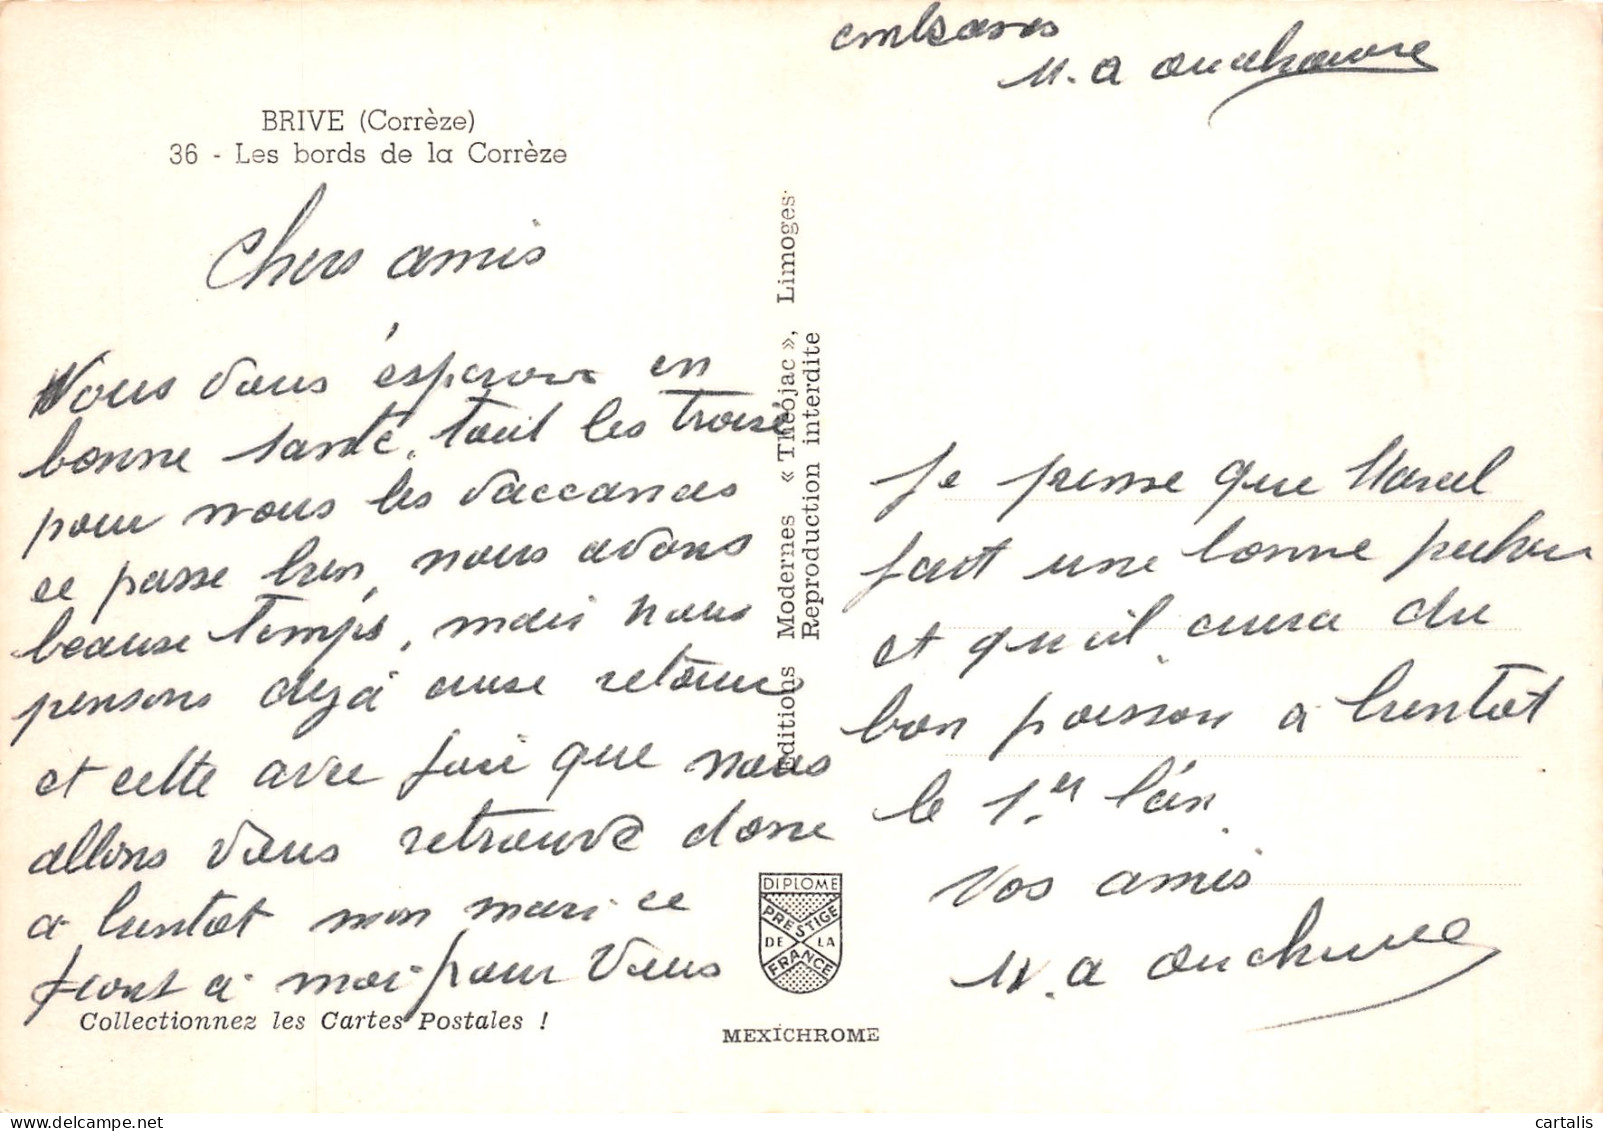 BRIVE (Corrèze)
36 - Les bords de la Corrèze
Chers amis
Nous vous ésperons en
bonne santé. tout les trois
pour nous les vaccances
ce passe bien, nous avons
beause temps, mais nous
pensons dejà ause retour
et cette avec joie que nous
allons vous retrouvé donc
a bientot mon mari ce
joint à moi pour vous
Collectionnez les Cartes Postales !
Editions Modernes « Théojac », Limoges
Reproduction interdite
DIPLOME
PRESTIGE
DE LA
FRANCE
MEXICHROME
embrases
M. a
Je pense que Marcel
fait une bonne peche
et qu'il aura du
bon poisson a bientot
le 1.er
Vos amis
M. a
cartalis
www.delcampe.net